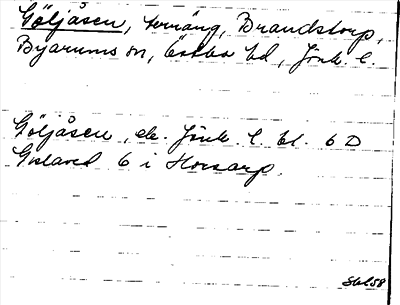 Göljåsen, terräng, Brandstorp,
Byarums sn, Östbo hd, Jönk. l.
Göljåsen, ek. Jönk. l. bl. 6 D
Gislaved 6 i Horsarp.
SbL58